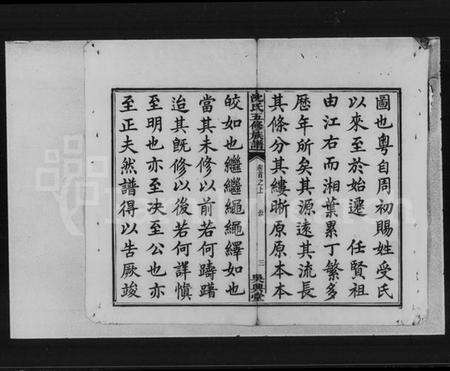 圖也粵自周初賜姓受氏
以來至於始遷 任賢祖
由江右而湘葉累丁繁多
歷年所矣其源遠其流長
其條分其縷晰原原本本
沈氏五修族譜 卷首之上 序 三 吳興堂
皎如也繼繼繩繩繹如也
當其未修以前若何躊躇
迨其既修以後若何詳慎
至明也亦至决至公也亦
至正夫然譜得以告厥竣